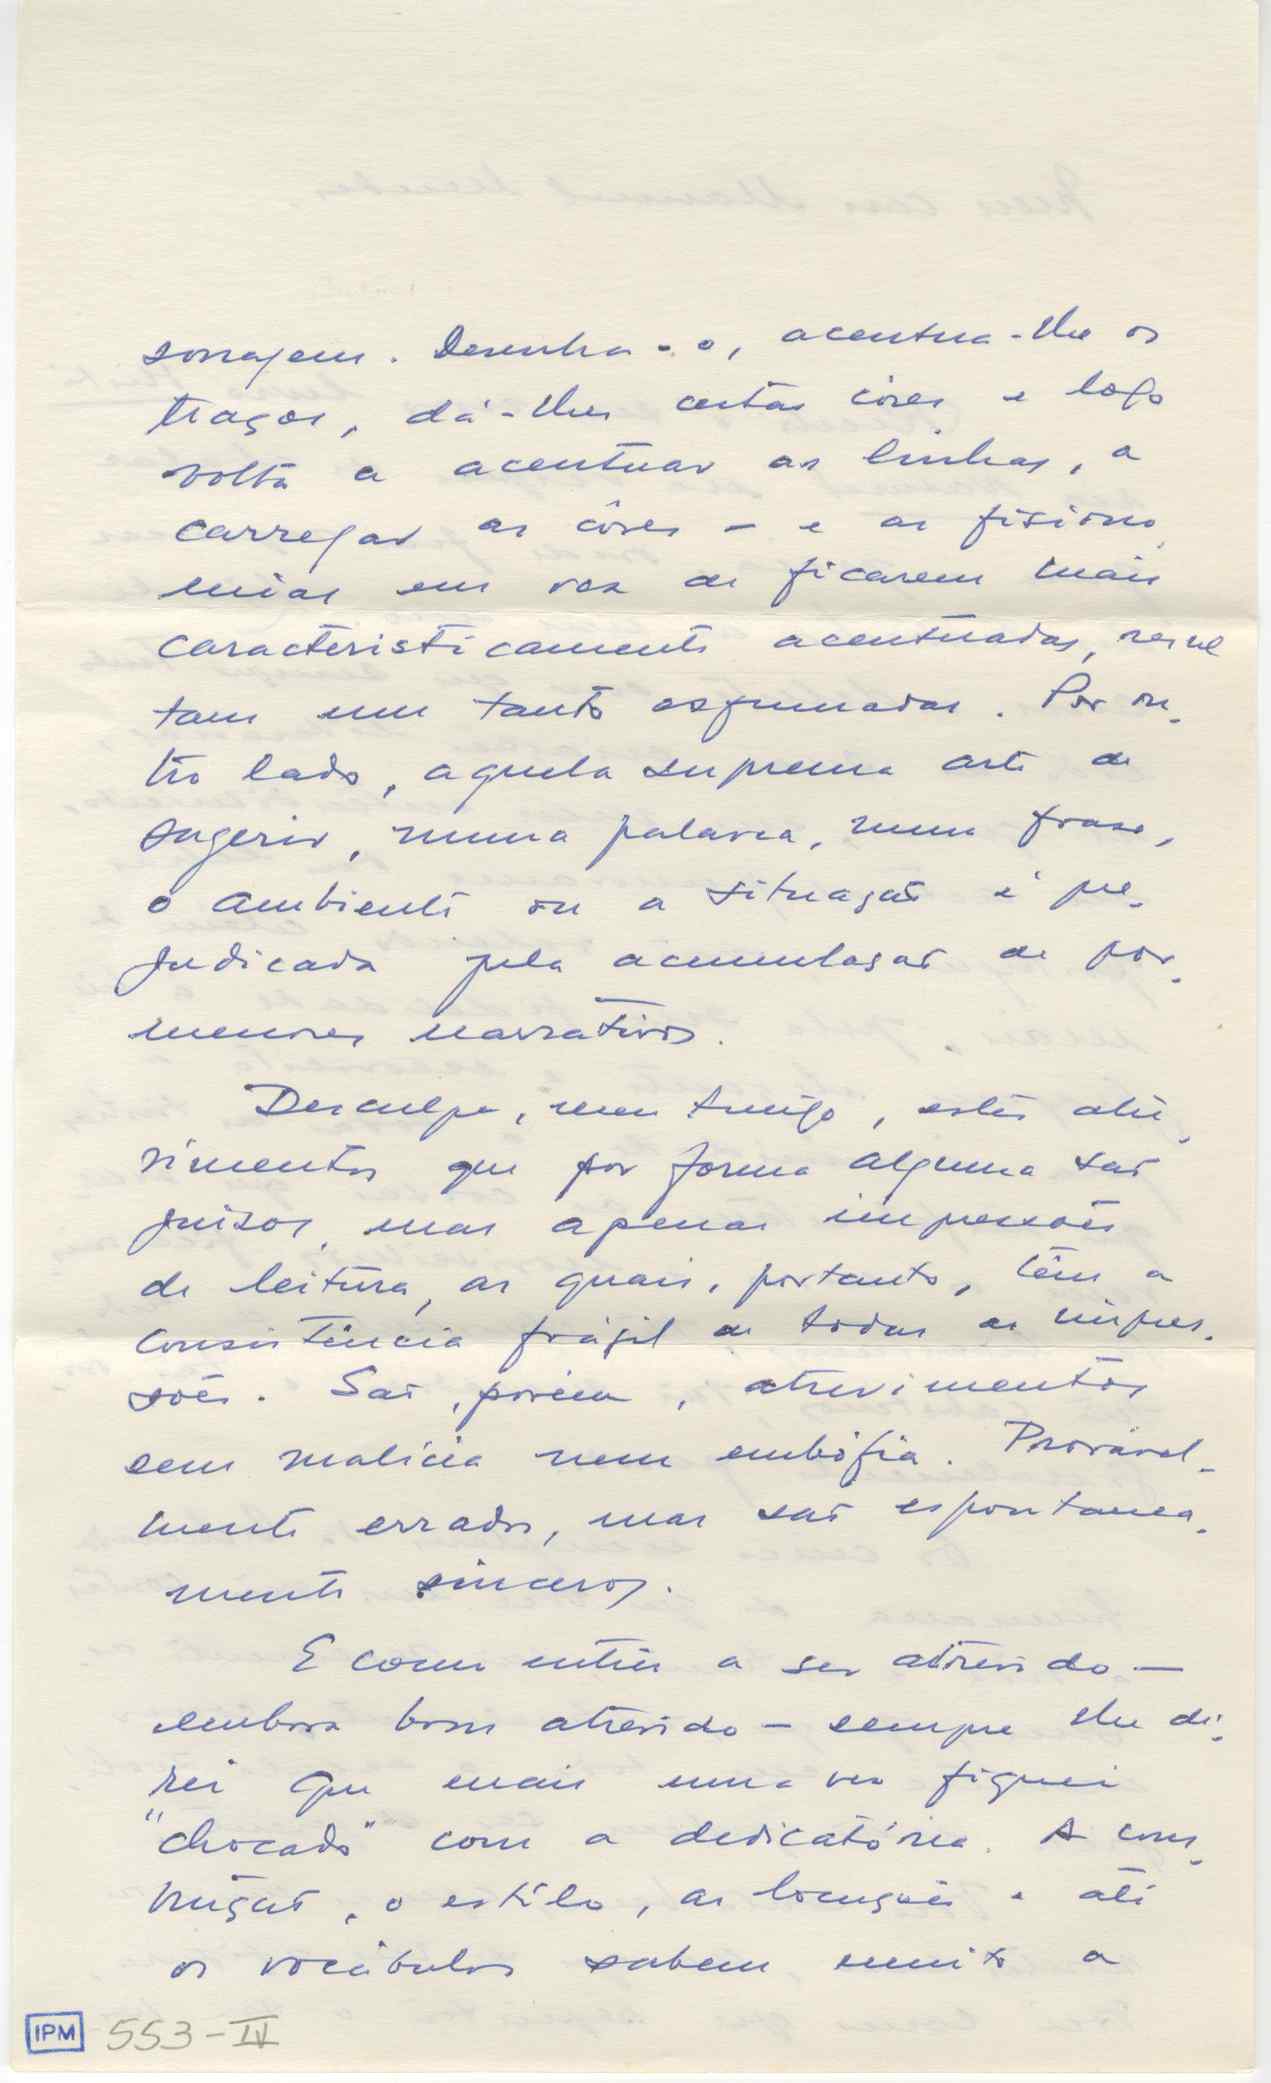 sonagem. Desenha-o, acentua-lhe os
traços, dá-lhes certas côres e logo
volta a acentuar as linhas, a
carregar as côres — e as fisiono-
mias em vez de ficarem mais
caracteristicamente acentuadas, resul
tam um tanto esfumadas. Por ou-
tro lado, aquela suprema arte de
sugerir, numa palavra, num frase,
o ambiente ou a situação é pre-
judicada pela acumulação de por-
menores narrativos.
Desculpe, meu Amigo, estes atre-
vimentos que por forma alguma são
juizos, mas apenas impressões
de leitura, as quais, portanto, têm a
consistência frágil de todas as impres-
sões. São, porém, atrevimentos
sem malícia nem embófia. Provável-
mente errados, mas são espontanea-
mente sinceros.
E como entrei a ser atrevido —
embora bom atrevido — sempre lhe di-
rei que mais uma vez fiquei
"chocado" com a dedicatória. A cons-
trução, o estilo, as locuções e até
os vocábulos sabem muito a
IPM 553-IV